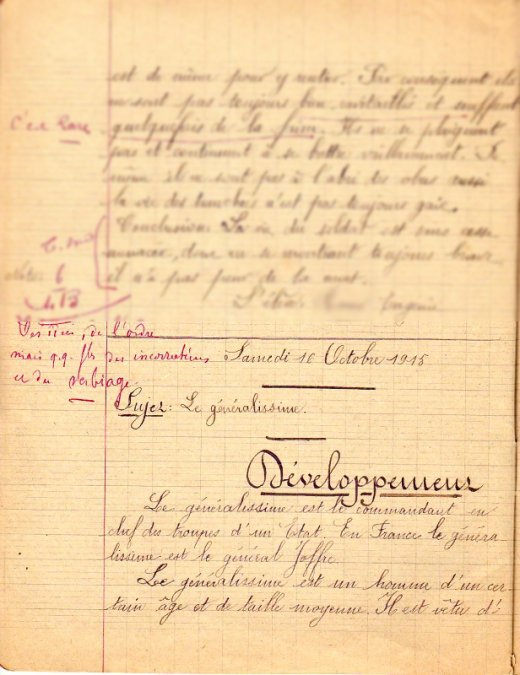 est de même pour y rentrer. Par conséquent ils
ne sont pas toujours bien installés et souffrent
C'est rare
quelquefois de la faim. Ils ne se plaignent
pas et continuent à se battre vaillamment.
même ils ne sont pas à l'abri des obus aussi
la vie des tranchées n'est pas toujours gaie.
Conclusion: La vie du soldat est sans cesse
menacée, donc en se montrant toujours brave
il n'a pas peur de la mort.
Note: 6
L'élève Eugénie
des idées, de l'ordre
mais q.q. fs des incorrections
et du verbiage.
Samedi 16 Octobre 1915
Sujet: Le généralissime.
Développement
Le généralissime est le commandant en
chef des troupes d'un Etat. En France le généra-
lissime est le général Joffre.
Le généralissime est un homme d'un cer-
tain âge et de taille moyenne. Il est vêtu d'